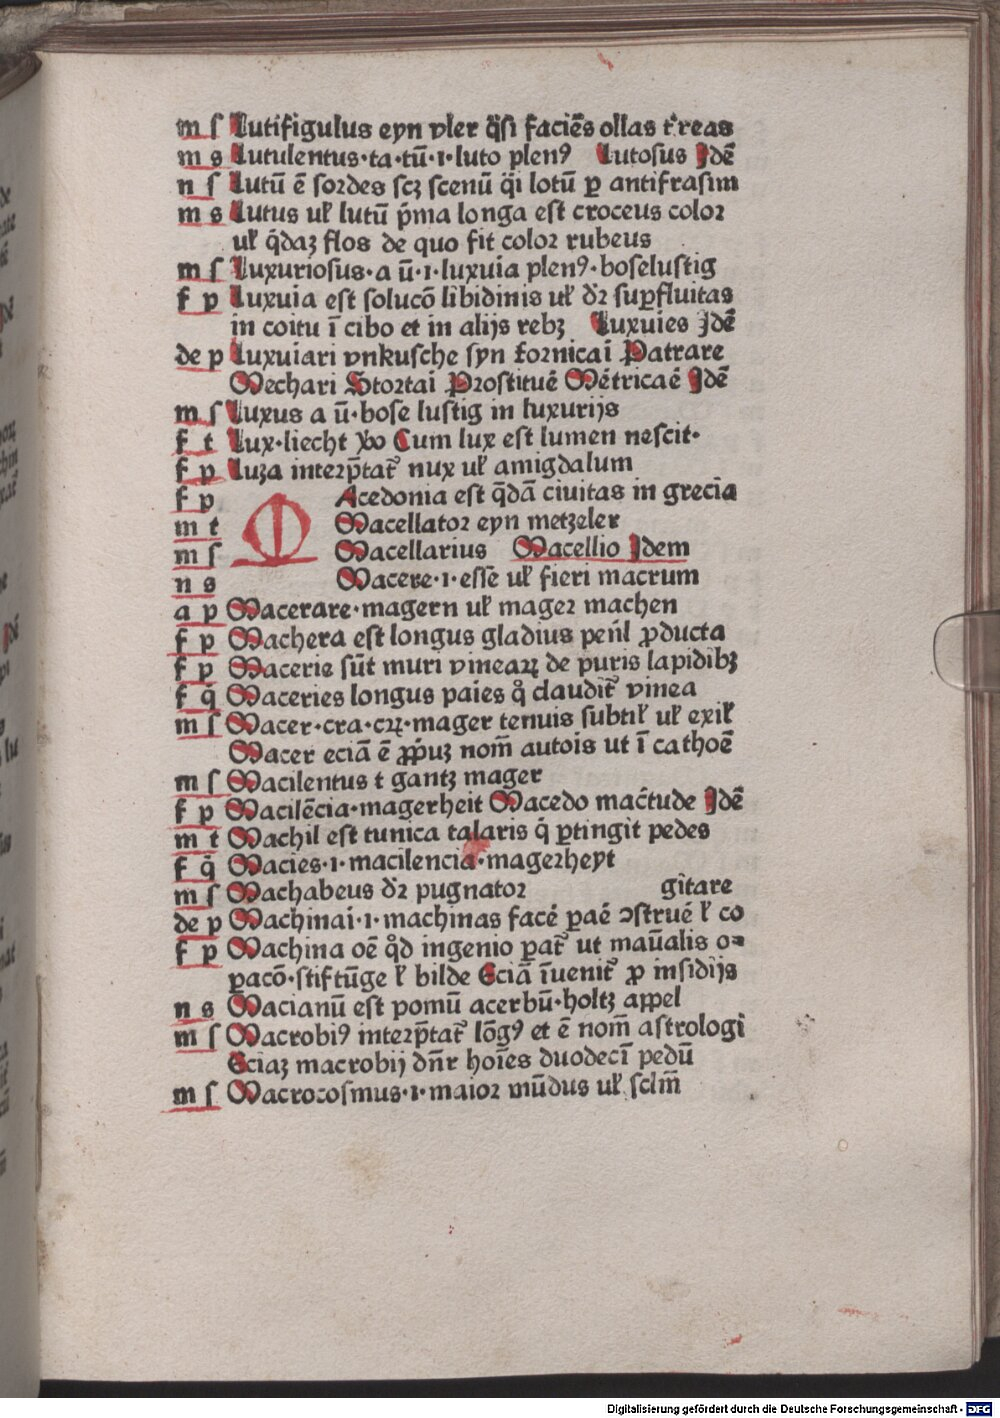 m ſ Lutifigulus eyn vler q̄ſi faciēs ollas t'reas
m s Lutulentus·ta·tū·ı·luto plenꝰ Lutoſus Jdē
n ſ Lutū ē ſordes ſcꝫ ſcenū q̄i lotū ꝑ antifraſim
m s Lutus uł lutū p̄ma longa eſt croceus coloꝛ
uł q̄daꝫ flos de quo fit coloꝛ rubeus
m ſ Luxurioſus·a ū·ı·luxuia plenꝰ·boſeluſtig
f p Luxuia eſt ſolucō libidinis uł dꝛ̄ ſuꝑfluitas
in coitu ī cibo et in alijs rebꝫ Luxuies Jdē
de p Luxuiari vnkuſche ſyn foꝛnicai Patrare
Mechari Stoꝛtai Pꝛoſtitue᷑ Me᷑tricae᷑ Jdē
m ſ Luxus a ū·boſe luſtig in luxurijs
f t Lux·liecht Cum lux eſt lumen neſcit·
f p Luza interp̄tat᷑ nux uł amigdalum
f p MAcedonia eſt q̄dā ciuitas in grecia
m t Macellatoꝛ eyn metzeler
m ſ Macellarius Macellio Jdem
n s Macere·ı·eſſe uł fieri macrum
a p Macerare·magern uł mageꝛ machen
f p Machera eſt longus gladius peñl ꝓducta
f p Macerie ſūt muri vineaꝝ de puris lapidibꝫ
f q̄ Maceries longus paies q̊ claudit᷑ vinea
m ſ Macer·cra·cꝝ·mager tenuis ſubtił uł exił
Macer eciā ē ꝓp̄uꝫ nom̄ autoıs ut ī cathoē
m ſ Macilentus t gantz mager
f p Macilēcia·magerheit Macedo mac᷑tude Jdē
m t Machil eſt tunica talaris q̄ ꝑtingit pedes
f q̄ Macies·ı·macilencia·mageꝛheyt
m ſ Machabeus dꝛ̄ pugnatoꝛ gitare
de p Machinai·ı·machinas face᷑ pae᷑ ↄſtrue᷑ ł co
f p Machina oē q̊d ingenio ꝑat᷑ ut maūalis o⸗
ꝑacō·ſtiftūge ł bilde Eciā īuenit᷑ ꝓ inſidijs
n s Macianū eſt pomū acerbū·holtz appel
m ſ Macrobiꝰ interp̄tat᷑ lōgꝰ et ē nom̄ aſtrologi
Eciaꝫ macrobij dñr hoıēs duodecī pedū
m ſ Macrocoſmus·ı·maioꝛ mūdus uł ſclm̄
Digitalisierung gefördert durch die Deutsche Forschungsgemeinschaft - DFG